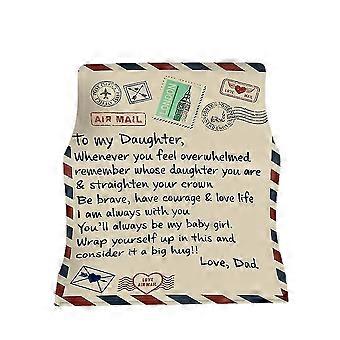 LONDON
LOVE MAIL
AIR MAIL
To my Daughter,
Whenever you feel overwhelmed
remember whose daughter you are
& straighten your crown
Be brave, have courage & love life
I am always with you
You'll always be my baby girl.
Wrap yourself up in this and
consider it a big hug!!
Love, Dad
LOVE
AIR MAIL